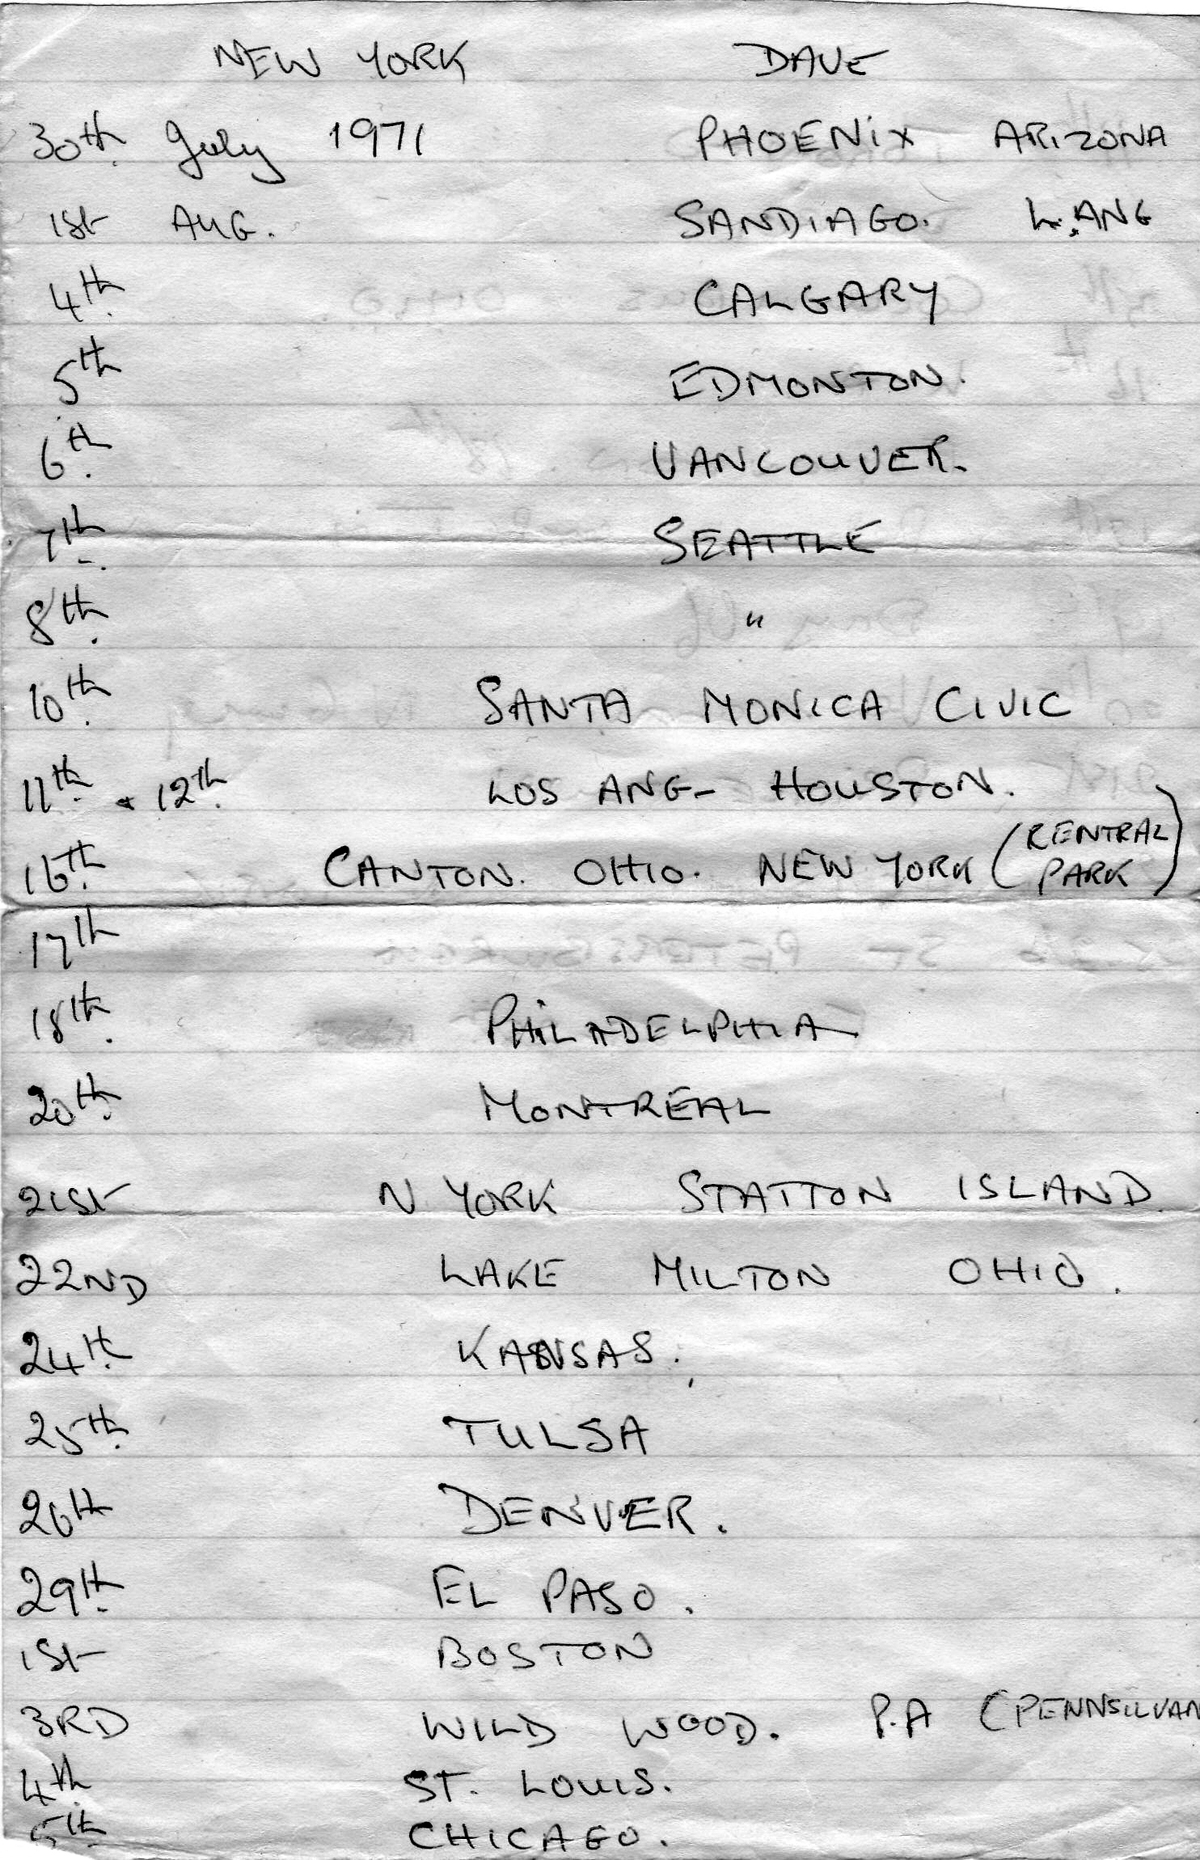 NEW YORK DAVE
30th July 1971 PHOENIX ARIZONA
1st AUG. SANDIAGO. L.ANG
4th CALGARY
5th EDMONTON.
6th VANCOUVER.
7th SEATTLE
8th "
10th SANTA MONICA CIVIC
11th & 12th LOS ANG- HOUSTON.
16th CANTON. OHIO. NEW YORK (CENTRAL PARK)
17th
18th PHILADELPHIA
20th MONTREAL
21st N YORK STATTON ISLAND.
22ND LAKE MILTON OHIO.
24th KANSAS.
25th TULSA
26th DENVER.
29th EL PASO.
1st BOSTON
3RD WILD WOOD. P.A (PENNSILVAN
4th ST. LOUIS.
5th CHICAGO.